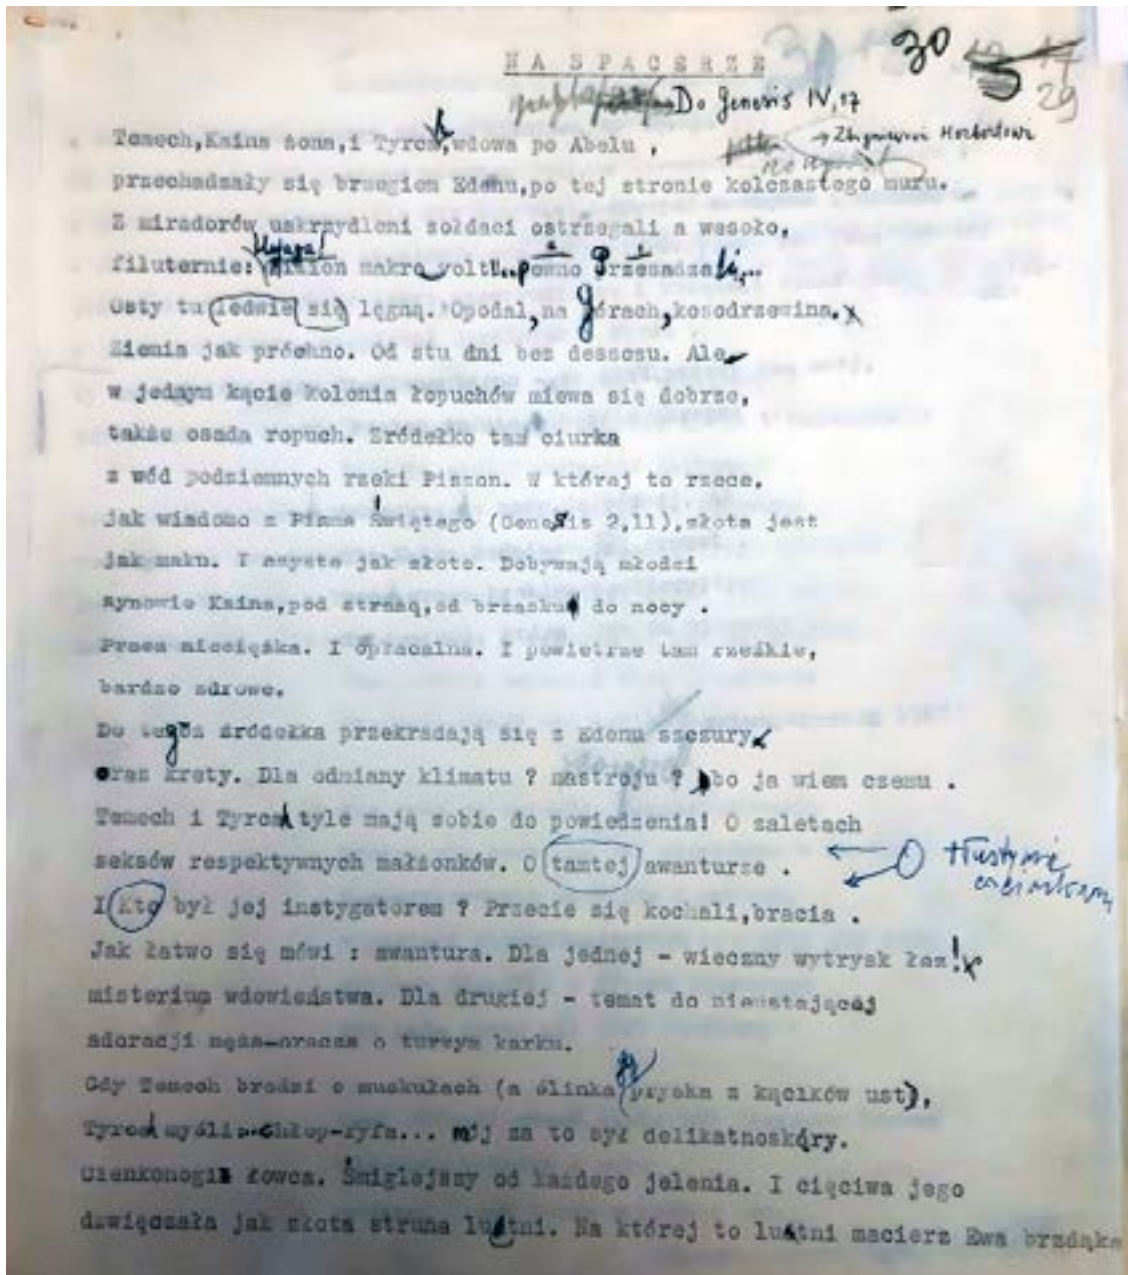 30
29
NA SPACERZE
Do Genesis IV, 17
→ Zbigniewowi Herbertowi
Temech, Kaina żona, i Tyrca, wdowa po Abelu ,
przechadzały się brzegiem Edenu, po tej stronie kolczastego muru.
Z miradorów uskrzydleni sołdaci ostrzegali a wesoło,
Uwaga!
filuternie: milion makro volt
Osty tu ledwie się lęgną. Opodal, na górach, kosodrzewina.
Ziemia jak próchno. Od stu dni bez deszczu. Ale
w jednym kącie kolonia łopuchów miewa się dobrze,
także osada ropuch. Zródełko tam ciurka
z wód podziemnych rzeki Piszon. W której to rzece,
jak wiadomo z Pisma Świętego (Genesis 2,11), złota jest
jak maku. I czyste jak złoto. Dobywają młodzi
synowie Kaina, pod strażą, od brzasku do nocy .
Praca nieciężka. I opłacalna. I powietrze tam rześkie,
bardzo zdrowe.
Do tegoż źródełka przekradają się z Edenu szczury
oraz krety. Dla odmiany klimatu ? nastroju ? bo ja wiem czemu .
Temech i Tyrca tyle mają sobie do powiedzenia! O zaletach
seksów respektywnych małżonków. O tamtej awanturze .
tłustymi
I kto był jej instygatorem ? Przecie się kochali, bracia .
Jak łatwo się mówi : awantura. Dla jednej - wieczny wytrysk łez!
misterium wdowieństwa. Dla drugiej - temat do nieustającej
adoracji męża-oracza o turzym karku.
Gdy Temech bredzi o muskułach (a ślinka pryska z kącików ust),
Tyrca myśli: Chłop-zyfa... mój za to był delikatnoskóry.
Cienkonogi łowca. Śmiglejszy od każdego jelenia. I cięciwa jego
dźwięczała jak złota struna lutni. Na której to lutni macierz Ewa brzdąka